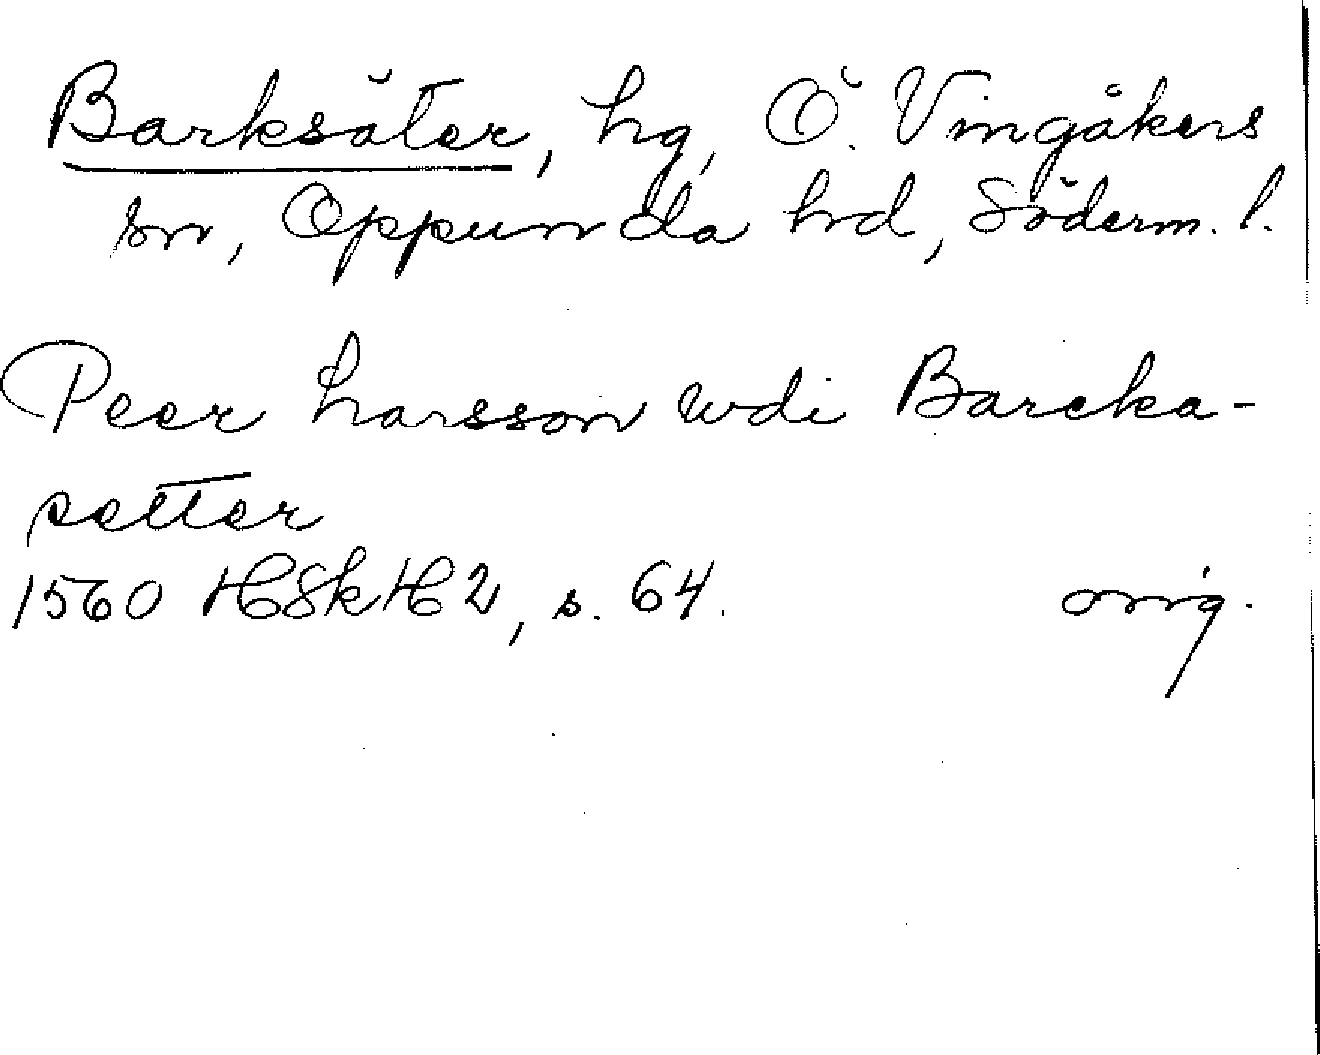 Barksäter, hg, Ö. Vingåkers
sn, Oppunda hrd, Söderm. l.
Peer Larsson wdi Barcka-
setter
1560 HSkH 2, s. 64. orig.